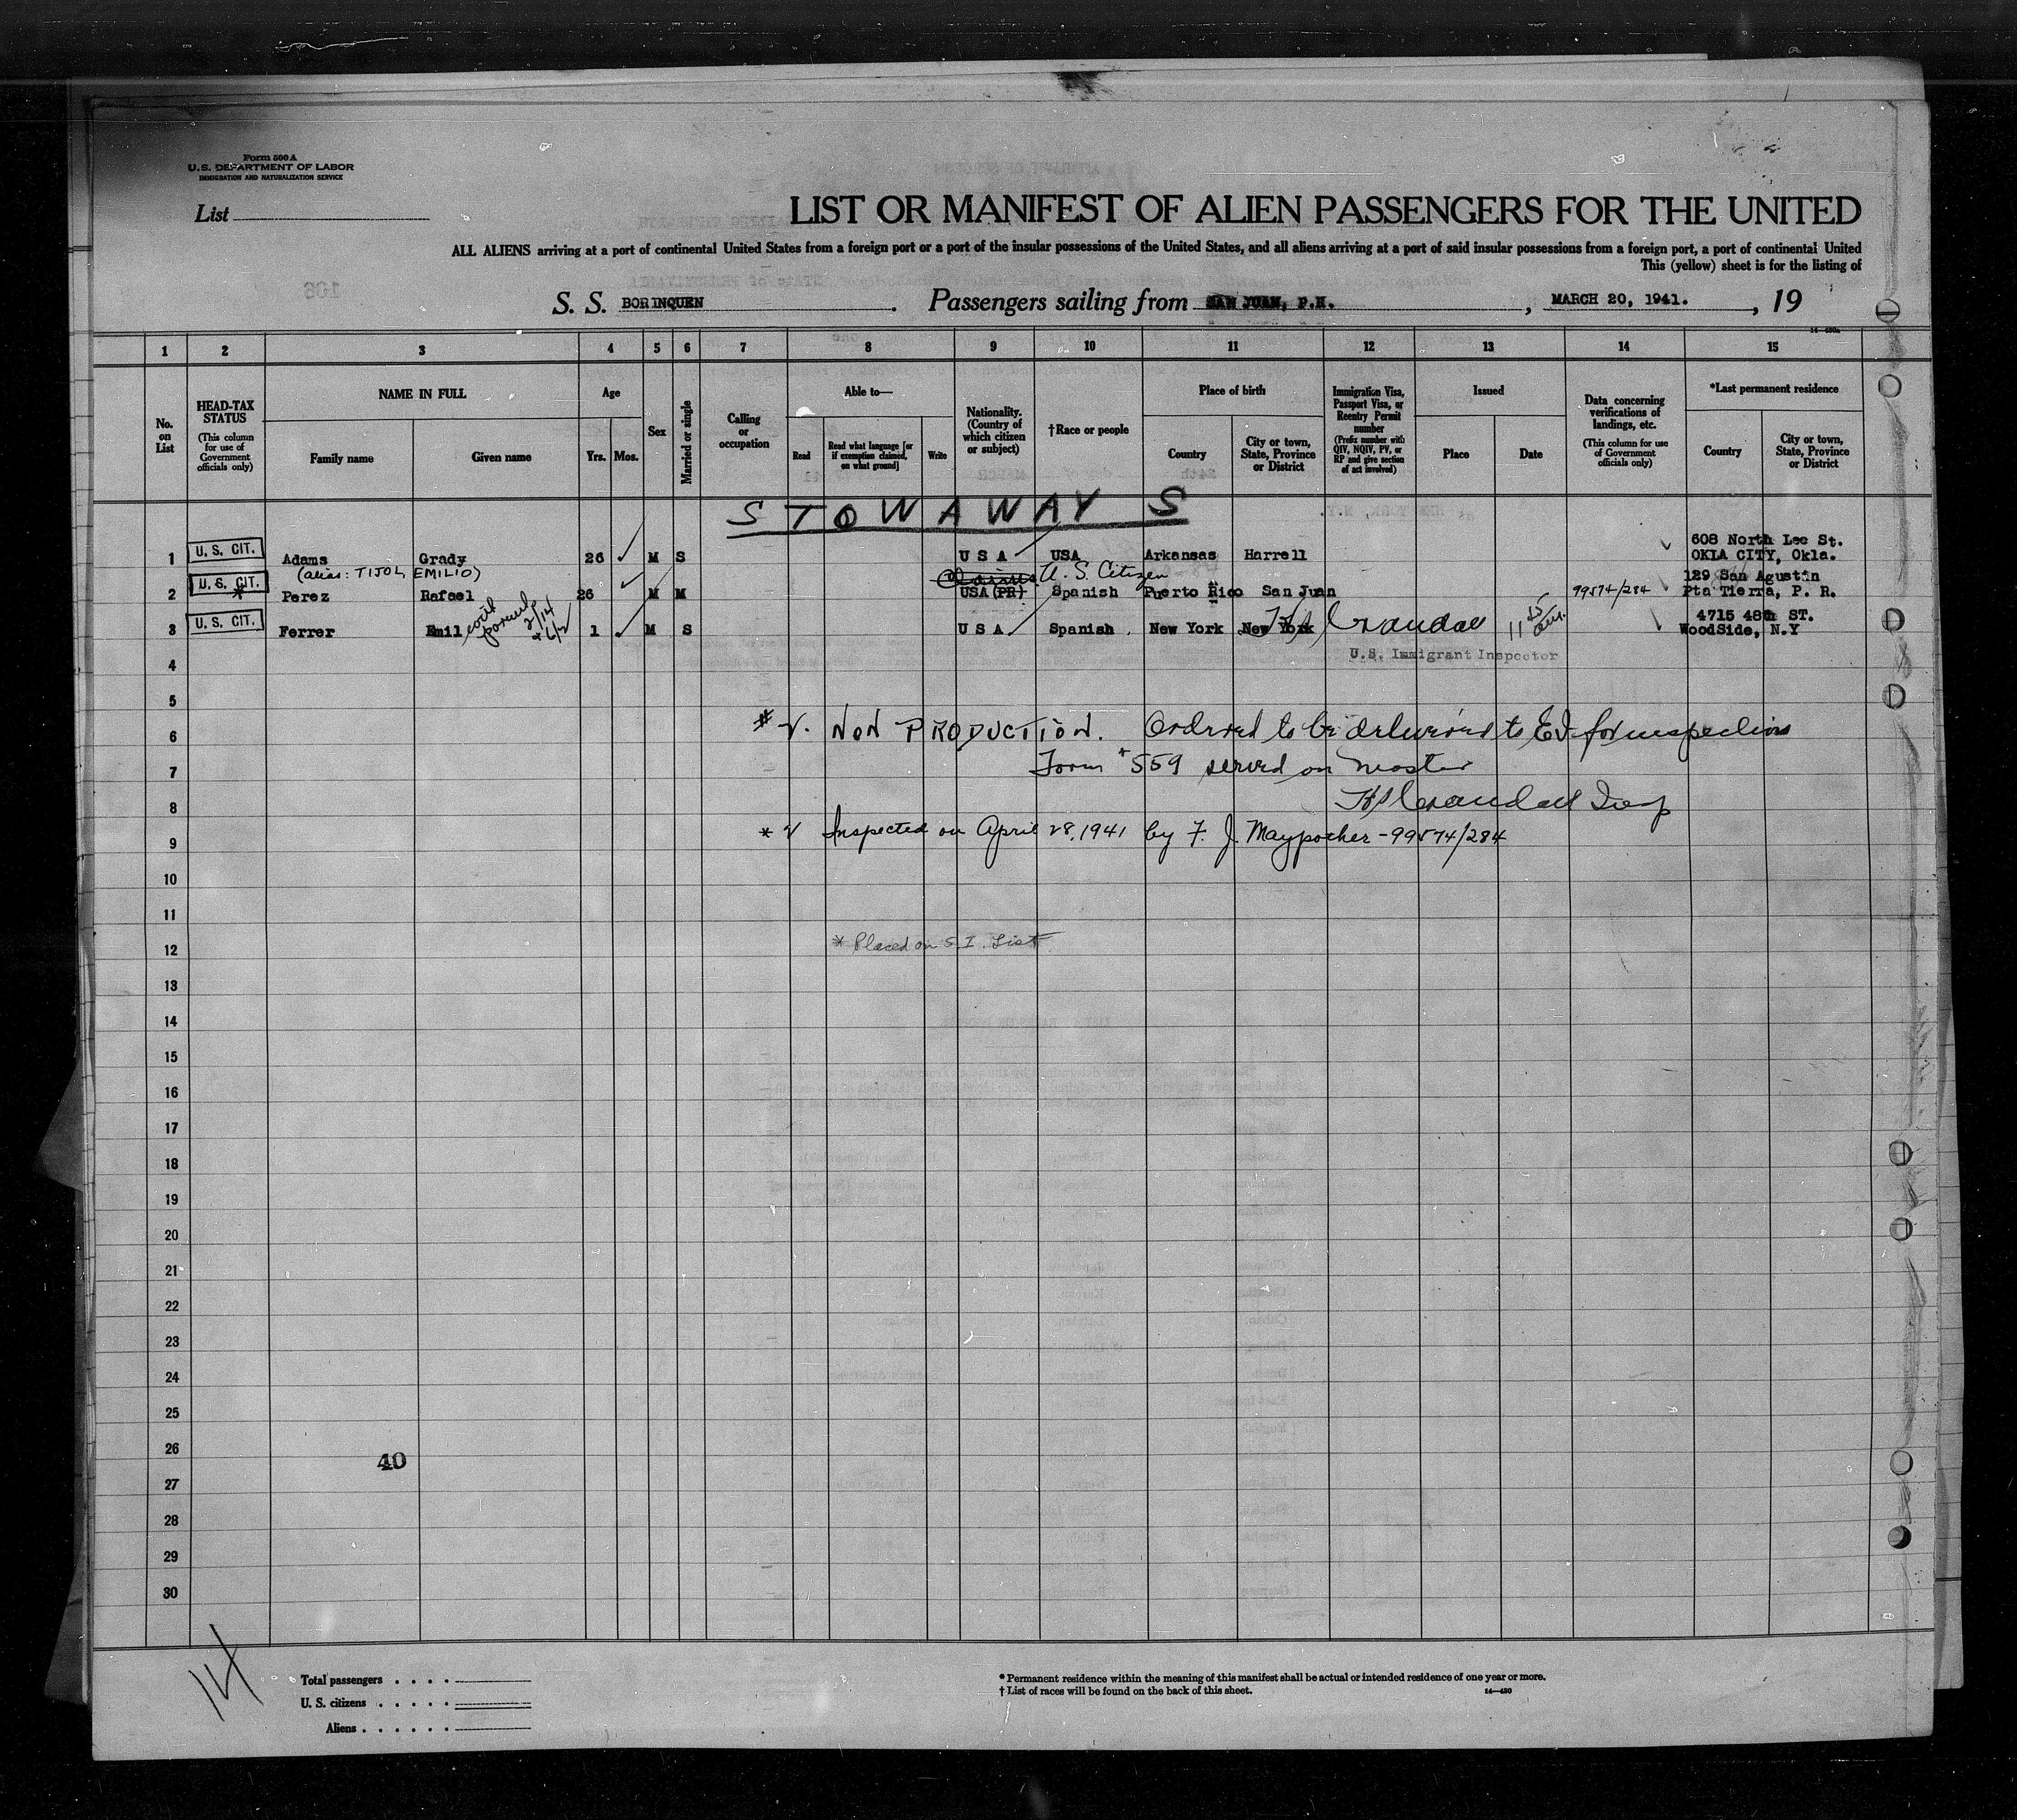 Form 500 A
U.S. DEPARTMENT OF LABOR
IMMIGRATION AND NATURALIZATION SERVICE
List
LIST OR MANIFEST OF ALIEN PASSENGERS FOR THE UNITED
ALL ALIENS arriving at a port of continental United States from a foreign port or a port of the insular possessions of the United States, and all aliens arriving at a port of said insular possessions from a foreign port, a port of continental United
This (yellow) sheet is for the listing of
S. S. BORINQUEN. Passengers sailing from SAN JUAN, P.R., MARCH 20, 1941., 19
14—480a
1 2 3 4 5 6 7 8 9 10 11 12 13 14 15
No. on List
HEAD-TAX STATUS (This column for use of Government officials only)
NAME IN FULL
Family name Given name
Age
Yrs. Mos.
Sex
Married or single
Calling or occupation
Able to—
Read Read what language [or if exemption claimed, on what ground] Write
Nationality. (Country of which citizen or subject)
†Race or people
Place of birth
Country City or town, State, Province or District
Immigration Visa, Passport Visa, or Reentry Permit number (Prefix number with QIV, NQIV, PV, or RP and give section of act involved)
Issued
Place Date
Data concerning verifications of landings, etc. (This column for use of Government officials only)
*Last permanent residence
Country City or town, State, Province or District
STOWAWAYS
608 North Lee St.
1 U. S. CIT. Adams Grady 26 ✓ M S U S A USA Arkansas Harrell ✓ OKLA CITY, Okla.
(alias: TIJOL, EMILIO) Claims U. S. Citizen
129 San Agustin
2 U. S. CIT. * Perez Rafael 26 ✓ M M USA (PR) Spanish Puerto Rico San Juan 99574/284 ✓ Pta Tierra, P. R.
with parents 2/14 + 6/2
4715 48th ST.
3 U. S. CIT. Ferrer Emil 1 ✓ M S U S A Spanish New York New York Crandall ✓ WoodSide, N.Y
4 U.S. Immigrant Inspector
5
6 # 2. NON PRODUCTION. Ordered to be delivered to EI for inspection
7 Form # 559 served on master
8 Crandall Insp
9 * 2 Inspected on April 28, 1941 by F. J. Maypother - 99574/284
10
11
12 * Placed on S.I. List
13
14
15
16
17
18
19
20
21
22
23
24
25
26
40
27
28
29
30
Total passengers
U. S. citizens
Aliens
* Permanent residence within the meaning of this manifest shall be actual or intended residence of one year or more.
† List of races will be found on the back of this sheet.
14—480